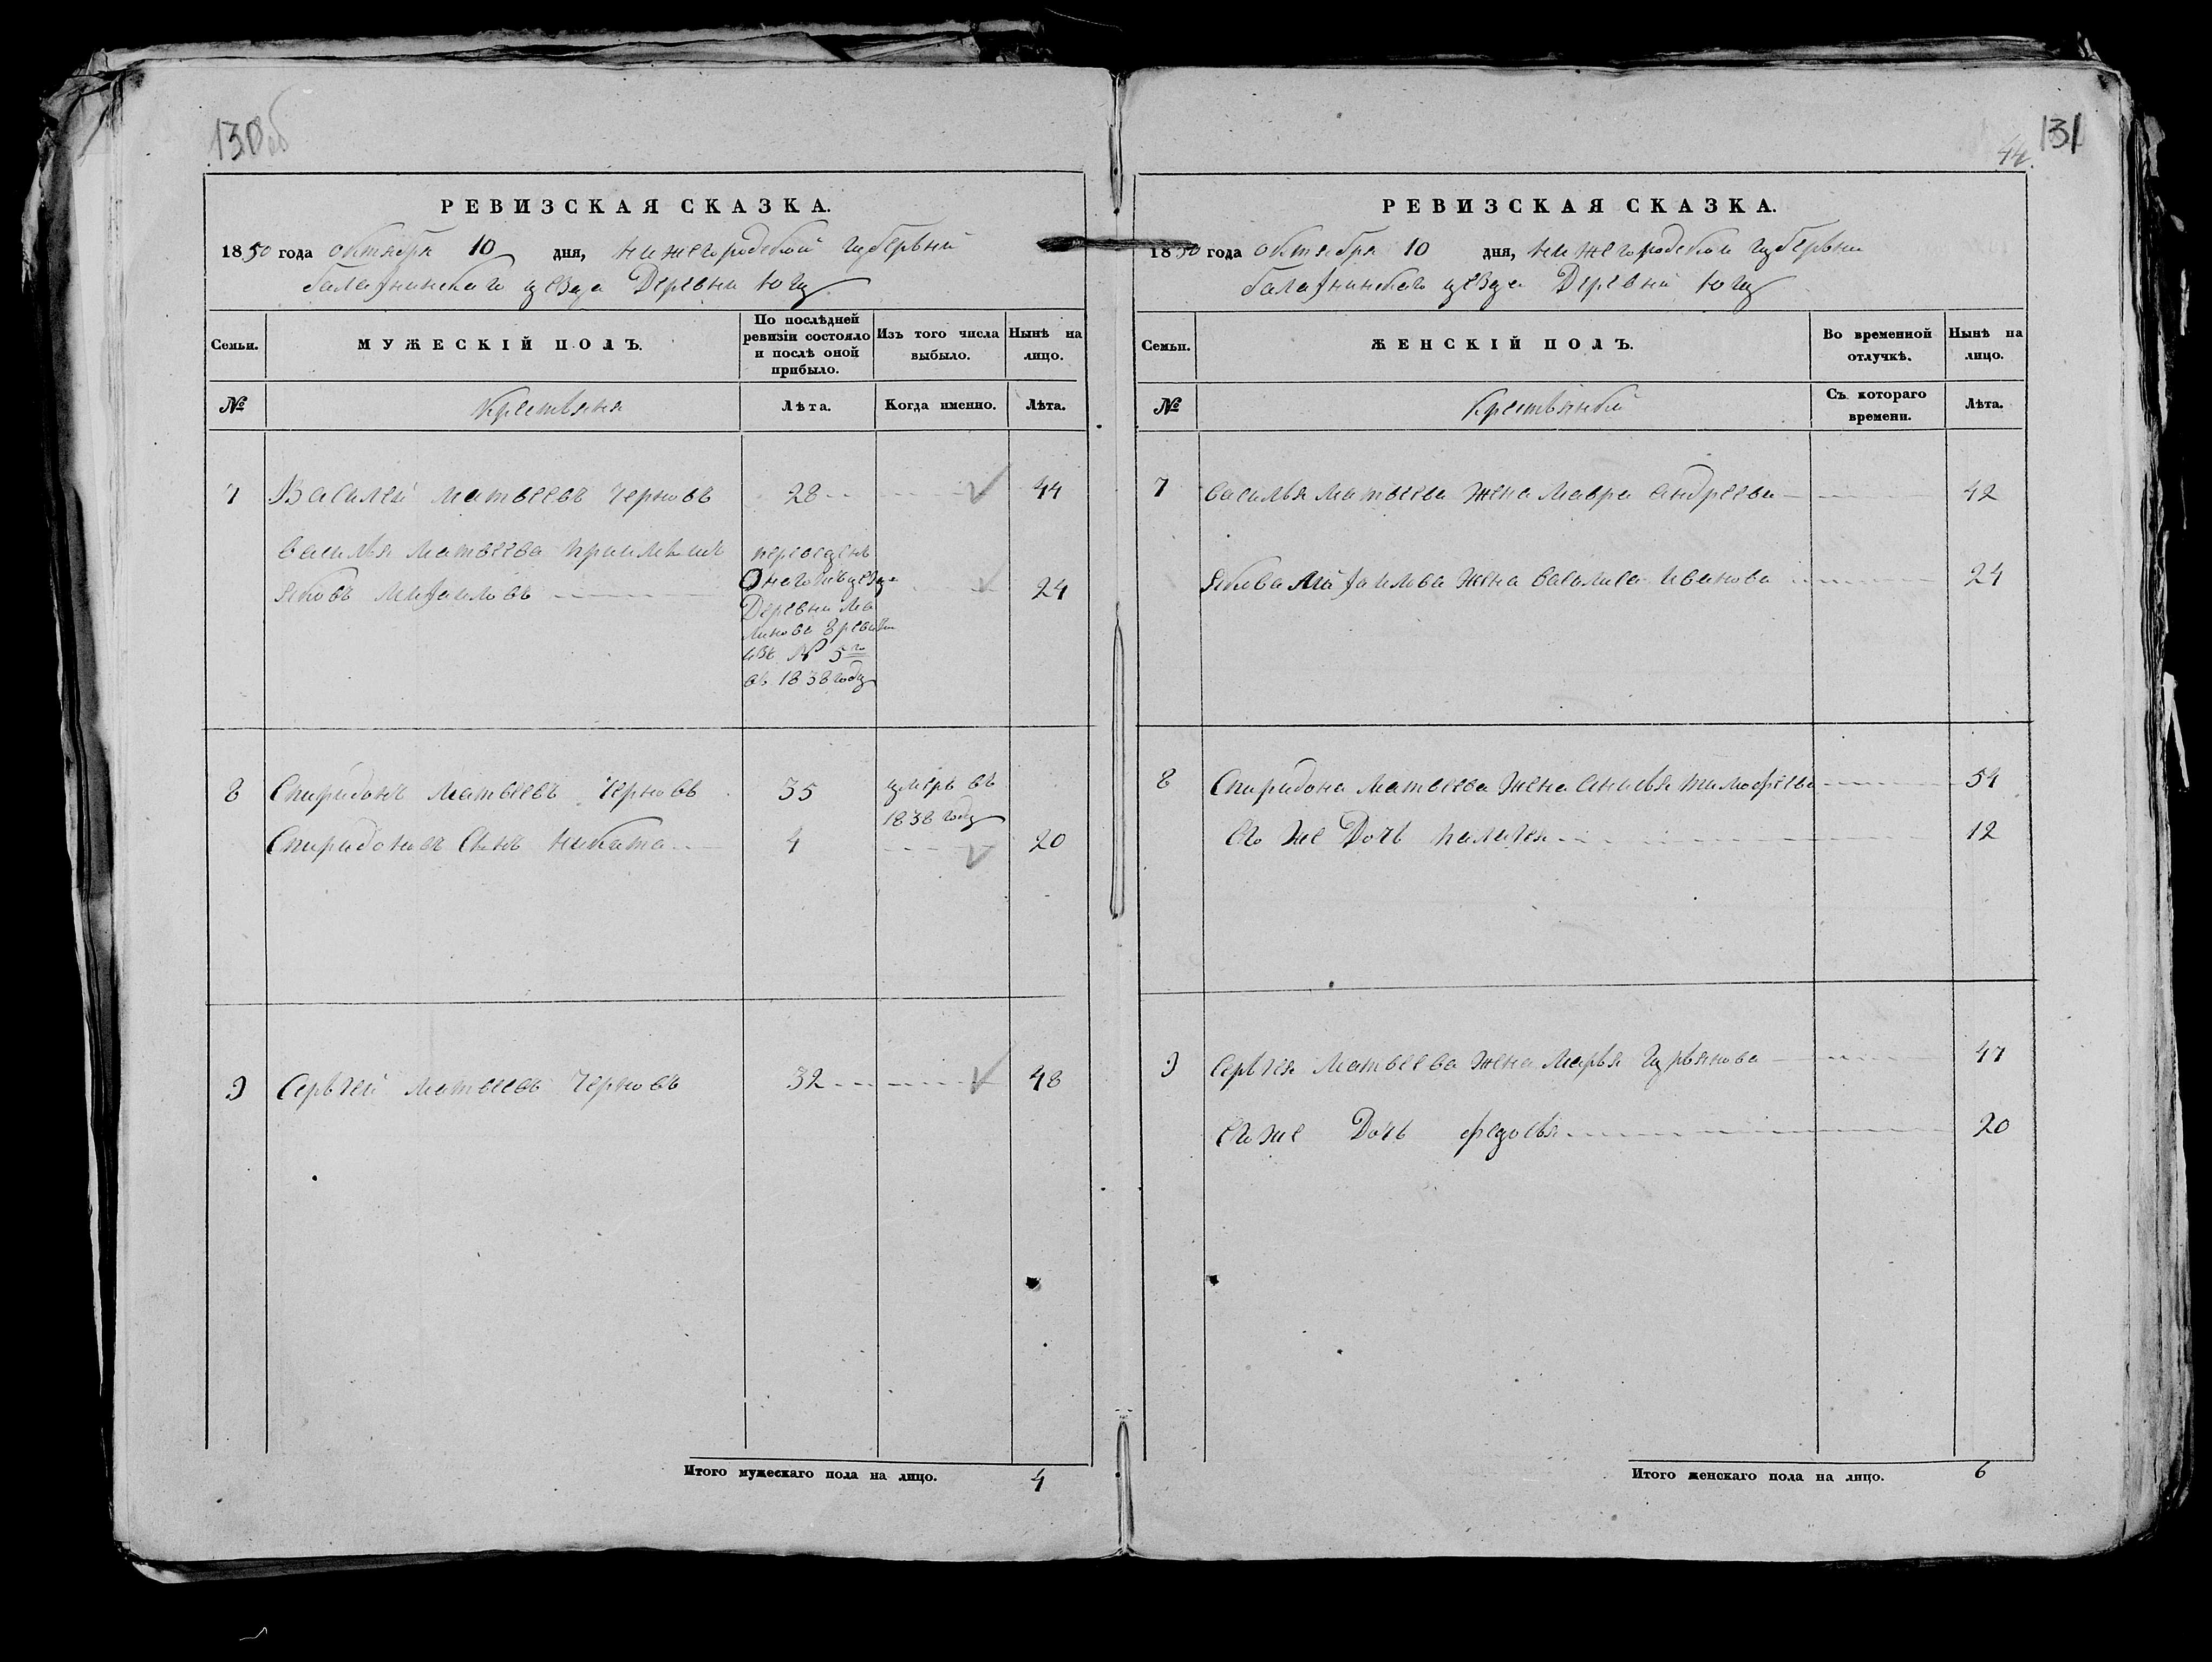 130об
РЕВИЗСКАЯ СКАЗКА.
1850 года октября 10 дня, нижегородской губерьнии
балахнинского уезда Деревни Югу
Семьи.
МУЖЕСКІЙ ПОЛЪ.
По послѣдней ревизіи состояло и послѣ оной прибыло.
Изъ того числа выбыло.
Нынѣ на лицо.
№
Крестьяня
Лѣта.
Когда именно.
Лѣта.
7 Василей матвеевъ черновъ 28 44
василья матвеева приимышъ
яковъ михаиловъ 24
переведенъ
Оногожъ уезда
Деревни
изъ № 5го
въ 1838 году
8 Спиридонъ матвеевъ черновъ 35 умеръ въ
1838 году
Спиридоновъ сынъ никита 4 20
9 Серьгей матвеевъ черновъ 32 48
Итого мужескаго пола на лицо. 4
131
44.
РЕВИЗСКАЯ СКАЗКА.
1850 года октября 10 дня, нижегородской губерьнии
балахнинского уезда Деревни Югу
Семьи.
ЖЕНСКІЙ ПОЛЪ.
Во временной отлучкѣ.
Нынѣ на лицо.
№
Крестьянки
Съ котораго времени.
Лѣта.
7 василья матвеева жена мавра андреева 42
якова михаилова жена василиса иванова 24
8 Спиридона матвеева жена анисья тимофеева 54
его же Дочь палагея 12
9 Серьгея матвеева жена марья гурьянова 47
его же Дочь федосья 20
Итого женскаго пола на лицо. 6